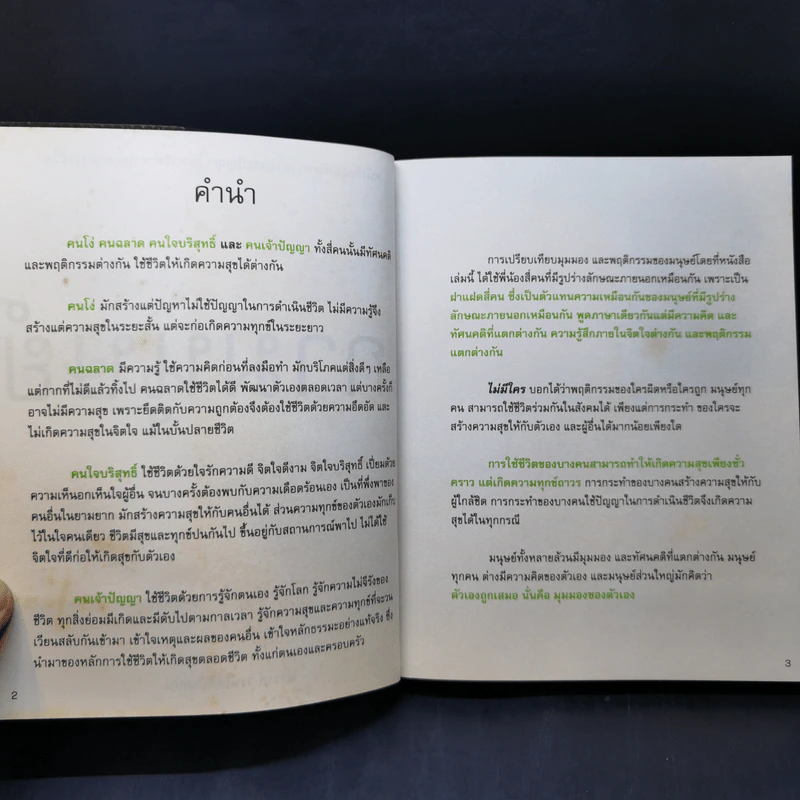 คำนำ
คนโง่ คนฉลาด คนใจบริสุทธิ์ และ คนเจ้าปัญญา ทั้งสี่คนนั้นมีทัศนคติ
และพฤติกรรมต่างกัน ใช้ชีวิตให้เกิดความสุขได้ต่างกัน
คนโง่ มักสร้างแต่ปัญหาไม่ใช้ปัญญาในการดำเนินชีวิต ไม่มีความรู้จึง
สร้างแต่ความสุขในระยะสั้น แต่จะก่อเกิดความทุกข์ในระยะยาว
คนฉลาด มีความรู้ ใช้ความคิดก่อนที่ลงมือทำ มักบริโภคแต่สิ่งดีๆ เหลือ
แต่กากที่ไม่ดีแล้วทิ้งไป คนฉลาดใช้ชีวิตได้ดี พัฒนาตัวเองตลอดเวลา แต่บางครั้งก็
อาจไม่มีความสุข เพราะยึดติดกับความถูกต้องจึงต้องใช้ชีวิตด้วยความอึดอัด และ
ไม่เกิดความสุขในจิตใจ แม้ในบั้นปลายชีวิต
คนใจบริสุทธิ์ ใช้ชีวิตด้วยใจรักความดี จิตใจดีงาม จิตใจบริสุทธิ์ เปี่ยมด้วย
ความเห็นอกเห็นใจผู้อื่น จนบางครั้งต้องพบกับความเดือดร้อนเอง เป็นที่พึ่งพาของ
คนอื่นในยามยาก มักสร้างความสุขให้กับคนอื่นได้ ส่วนความทุกข์ของตัวเองมักเก็บ
ไว้ในใจคนเดียว ชีวิตมีสุขและทุกข์ปนกันไป ขึ้นอยู่กับสถานการณ์พาไป ไม่ได้ใช้
จิตใจที่ดีก่อให้เกิดสุขกับตัวเอง
คนเจ้าปัญญา ใช้ชีวิตด้วยการรู้จักตนเอง รู้จักโลก รู้จักความไม่จีรังของ
ชีวิต ทุกสิ่งย่อมมีเกิดและมีดับไปตามกาลเวลา รู้จักความสุขและความทุกข์ที่จะวน
เวียนสลับกันเข้ามา เข้าใจเหตุและผลของคนอื่น เข้าใจหลักธรรมะอย่างแท้จริง ซึ่ง
นำมาของหลักการใช้ชีวิตให้เกิดสุขตลอดชีวิต ทั้งแก่ตนเองและครอบครัว
2
การเปรียบเทียบมุมมอง และพฤติกรรมของมนุษย์โดยที่หนังสือ
เล่มนี้ ได้ใช้พี่น้องสี่คนที่มีรูปร่างลักษณะภายนอกเหมือนกัน เพราะเป็น
ฝาแฝดสี่คน ซึ่งเป็นตัวแทนความเหมือนกันของมนุษย์ที่มีรูปร่าง
ลักษณะภายนอกเหมือนกัน พูดภาษาเดียวกันแต่มีความคิด และ
ทัศนคติที่แตกต่างกัน ความรู้สึกภายในจิตใจต่างกัน และพฤติกรรม
แตกต่างกัน
ไม่มีใคร บอกได้ว่าพฤติกรรมของใครผิดหรือใครถูก มนุษย์ทุก
คน สามารถใช้ชีวิตร่วมกันในสังคมได้ เพียงแต่การกระทำ ของใครจะ
สร้างความสุขให้กับตัวเอง และผู้อื่นได้มากน้อยเพียงใด
การใช้ชีวิตของบางคนสามารถทำให้เกิดความสุขเพียงชั่ว
คราว แต่เกิดทุกข์ถาวร การกระทำของบางคนสร้างความสุขให้กับ
ผู้ใกล้ชิด การกระทำของบางคนใช้ปัญญาในการดำเนินชีวิตจึงเกิดความ
สุขได้ในทุกกรณี
มนุษย์ทั้งหลายล้วนมีมุมมอง และทัศนคติที่แตกต่างกัน มนุษย์
ทุกคน ต่างมีความคิดของตัวเอง และมนุษย์ส่วนใหญ่มักคิดว่า
ตัวเองถูกเสมอ นั่นคือ มุมมองของตัวเอง
3